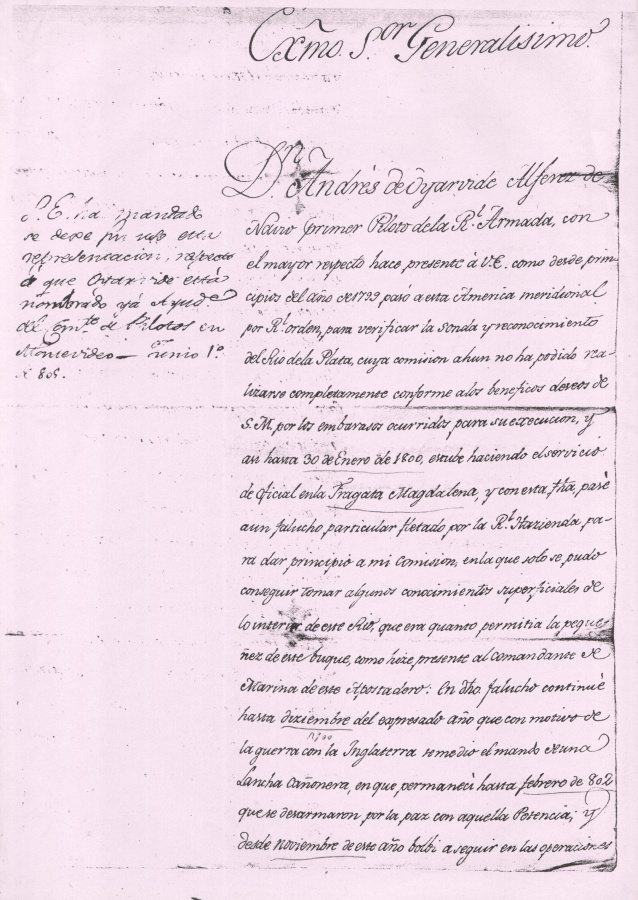 Exmo. Sor. Generalisimo.
Dn. Andrés de Oyarvide Alferez de
Navio primer Piloto de la Rl. Armada, con
el mayor respecto hace presente à V.E. como desde prin-
cipios del año de 1799 pasó a esta America meridional
por Rl. orden, para verificar la sonda y reconocimiento
del Rio de la Plata, cuya comision ahun no ha podido rea-
lizarse completamente conforme alos beneficos deseos de
S.M. por los embarasos ocurridos para su execucion, y
asi hasta 30 de Enero de 1800, estube haciendo el servicio
de Oficial enla Fragata Magdalena, y con esta fha, pasé
a un falucho particular fletado por la Rl. Hazienda pa-
ra dar principio a mi Comision, enla que solo se pudo
conseguir tomar algunos conocimientos superficiales de
lo interior de este Rio, que era quanto permitia la peque-
ñez de este buque, como hize presente al Comandante de
Marina de este Apostadero: En dho. falucho continué
hasta diziembre del expresado año que con motivo de
1800
la guerra con la Inglaterra se me dio el mando de una
Lancha Cañonera, en que permaneci hasta febrero de 802
que se desarmaron por la paz con aquella Potencia; y
desde noviembre de este año bolbi a seguir en las operaciones
S. E. ha mandado
se deje sin uso esta
representacion, respecto
á que Oyarvide está
nombrado ya Ayude.
del Comte. de Pilotos en
Montevideo — Junio 1º.
805.